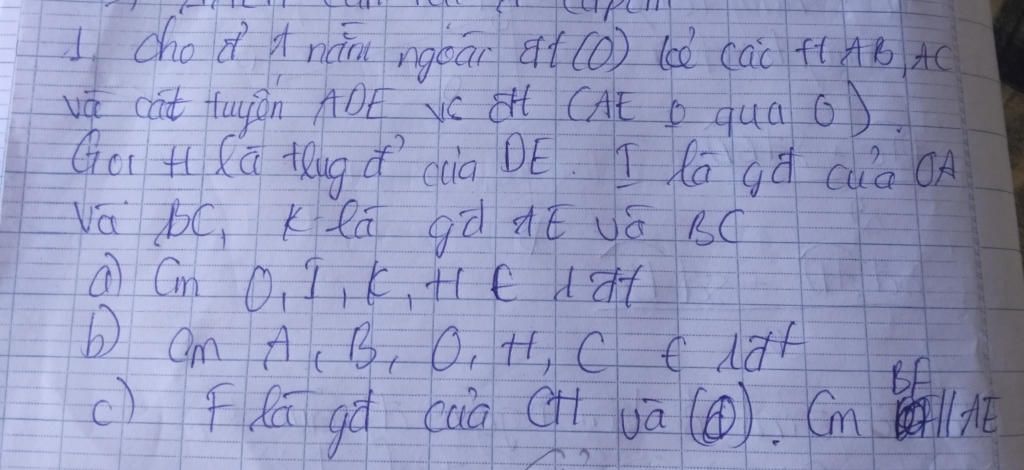 1. Cho đ' A nằm ngoài đt (O) kẻ các tt AB, AC
và cát tuyến ADE vs đt (AE o qua O).
Gọi H là trug đ' của DE. I là gđ của OA
Và BC, K là gđ AE và BC
a) Cm O, I, K, H ∈ 1 đt
b) Cm A, B, O, H, C ∈ 1 đt
c) F là gđ của CH và (O). Cm BF // AE